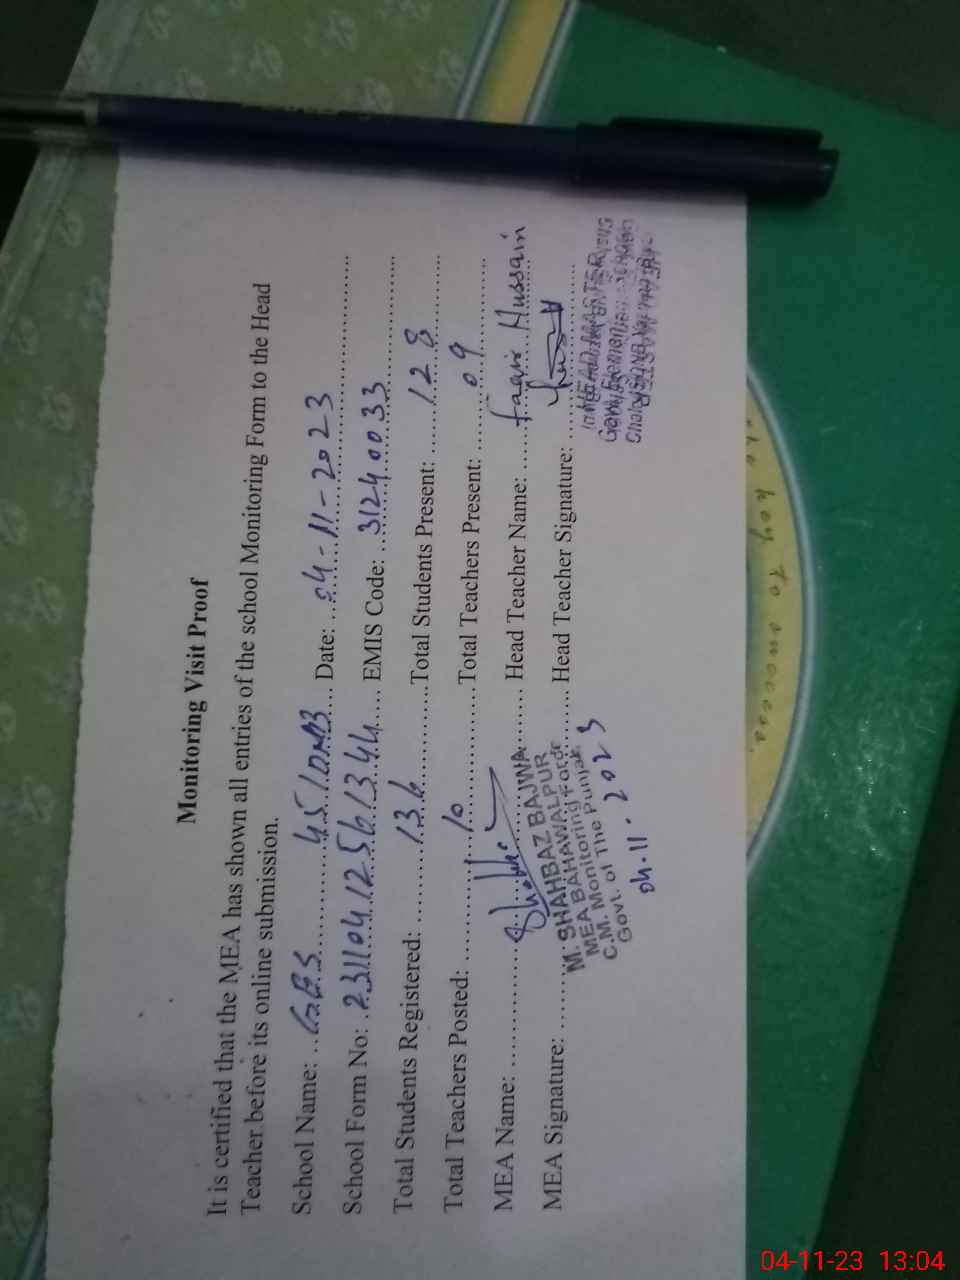 Monitoring Visit Proof
It is certified that the MEA has shown all entries of the school Monitoring Form to the Head
Teacher before its online submission.
School Name: ...GES............45/DNB... Date: ...04-11-2023...
School Form No: .23110412561344.... EMIS Code: ...31240033
Total Students Registered: .........136............Total Students Present: .....128...
Total Teachers Posted: ............10..............Total Teachers Present: ......09.......
MEA Name: ........................ Head Teacher Name: ....Hussain
MEA Signature: ........................ Head Teacher Signature: ........................
M. SHAHBAZ BAJWA
MEA BAHAWALPUR
C.M. Monitoring Force
Govt. of The Punjab
04.11.2023
HEAD MASTER
Govt. Elementary School
key To success.
04-11-23 13:04